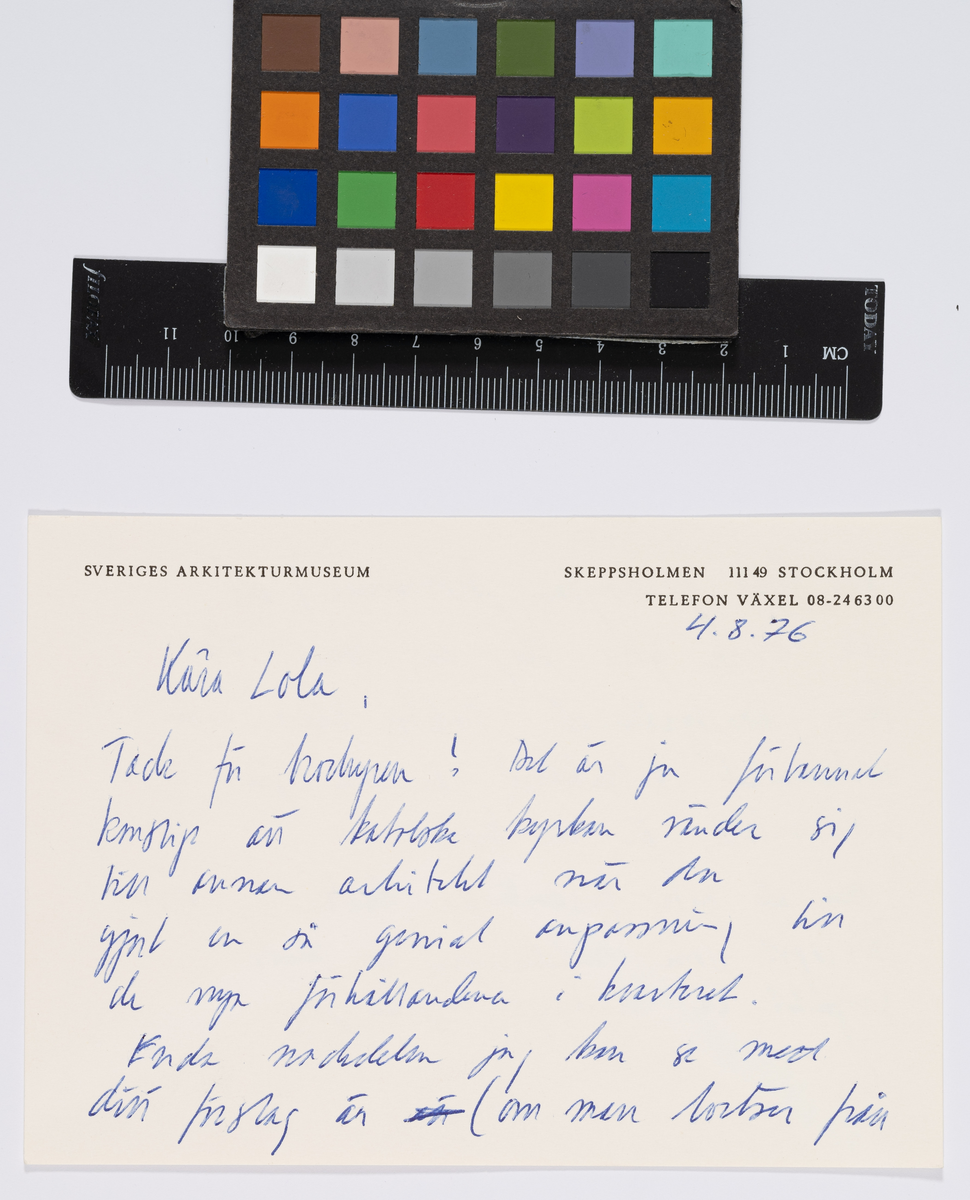 11 10 9 8 7 6 5 4 3 2 1 CM
SVERIGES ARKITEKTURMUSEUM
SKEPPSHOLMEN 111 49 STOCKHOLM
TELEFON VÄXEL 08-24 63 00
4.8.76
Kära Lola,
Tack för brochyren! Det är ju förbannat
konstigt att katolska kyrkan vänder sig
till annan arkitekt när du
gjort en så genial anpassning till
de nya förhållandena i kvarteret.
Enda nackdelen jag kan se med
ditt förslag är (om man bortser från